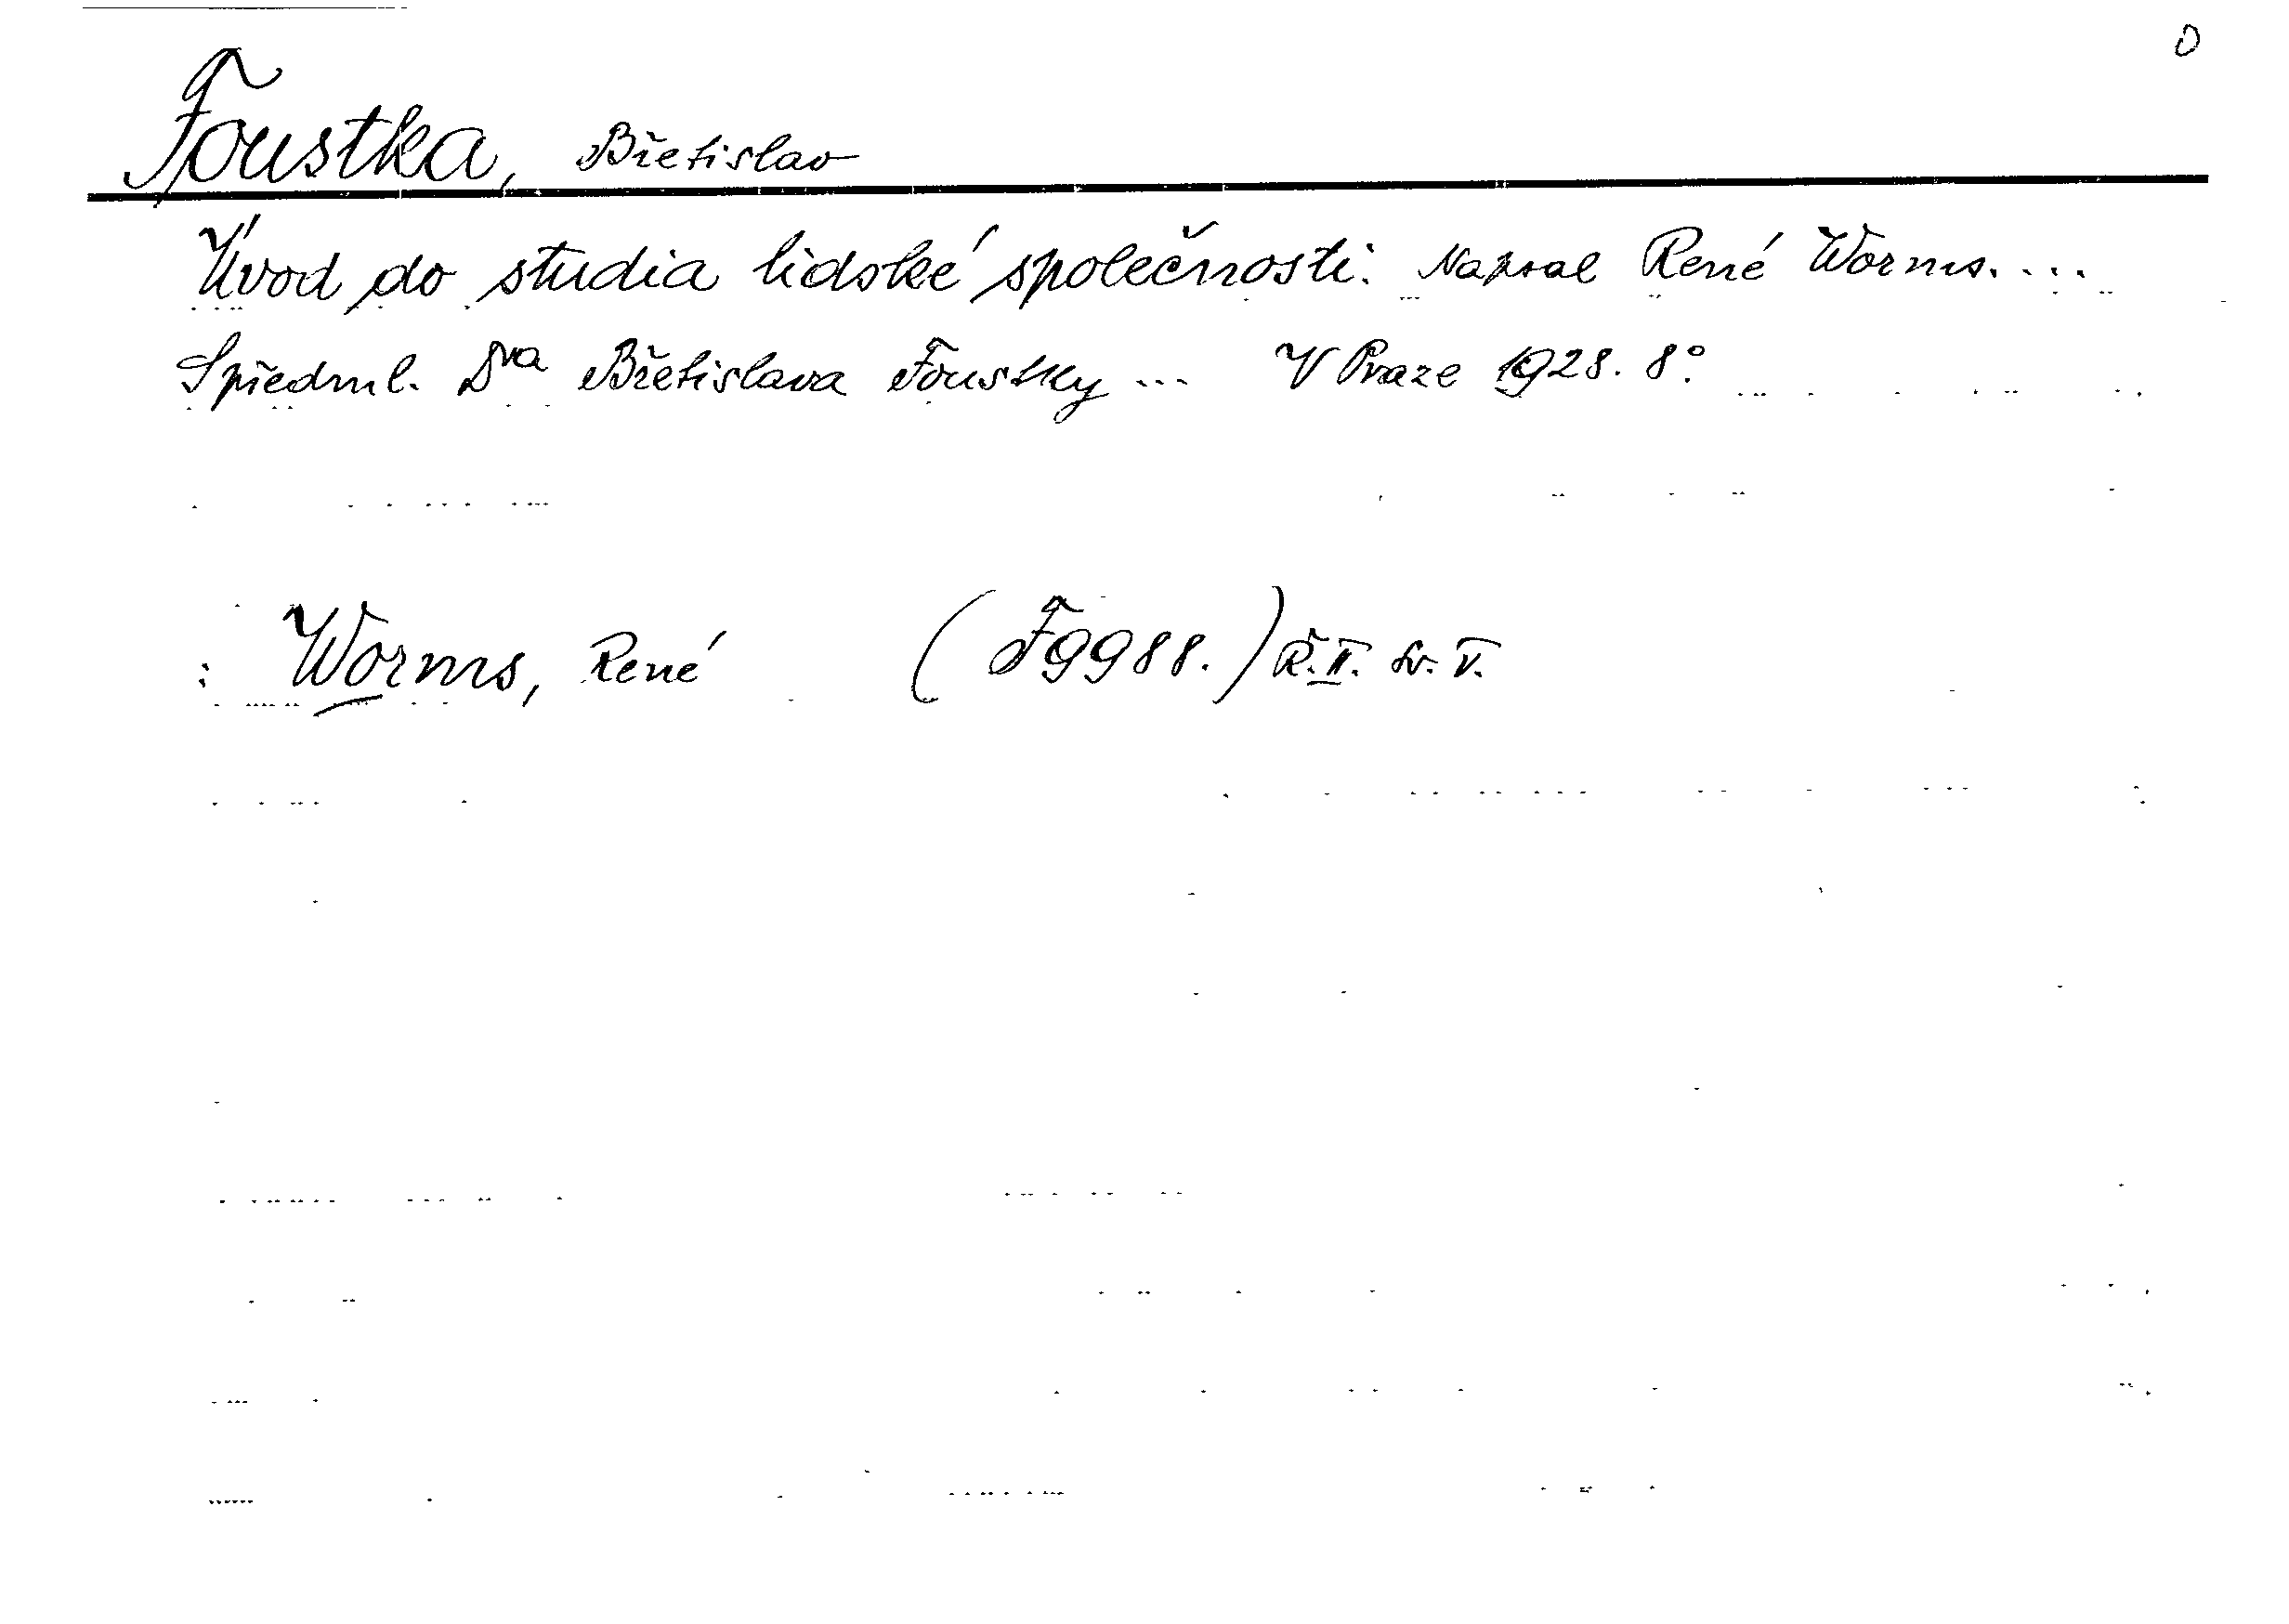 D
Foustka, Břetislav
Úvod do studia lidské společnosti. Napsal René Worms. ...
S předml. Dra Břetislava Foustky ... V Praze 1928. 8°.
: Worms, René (F 9988.) Ř.II. sv. V.